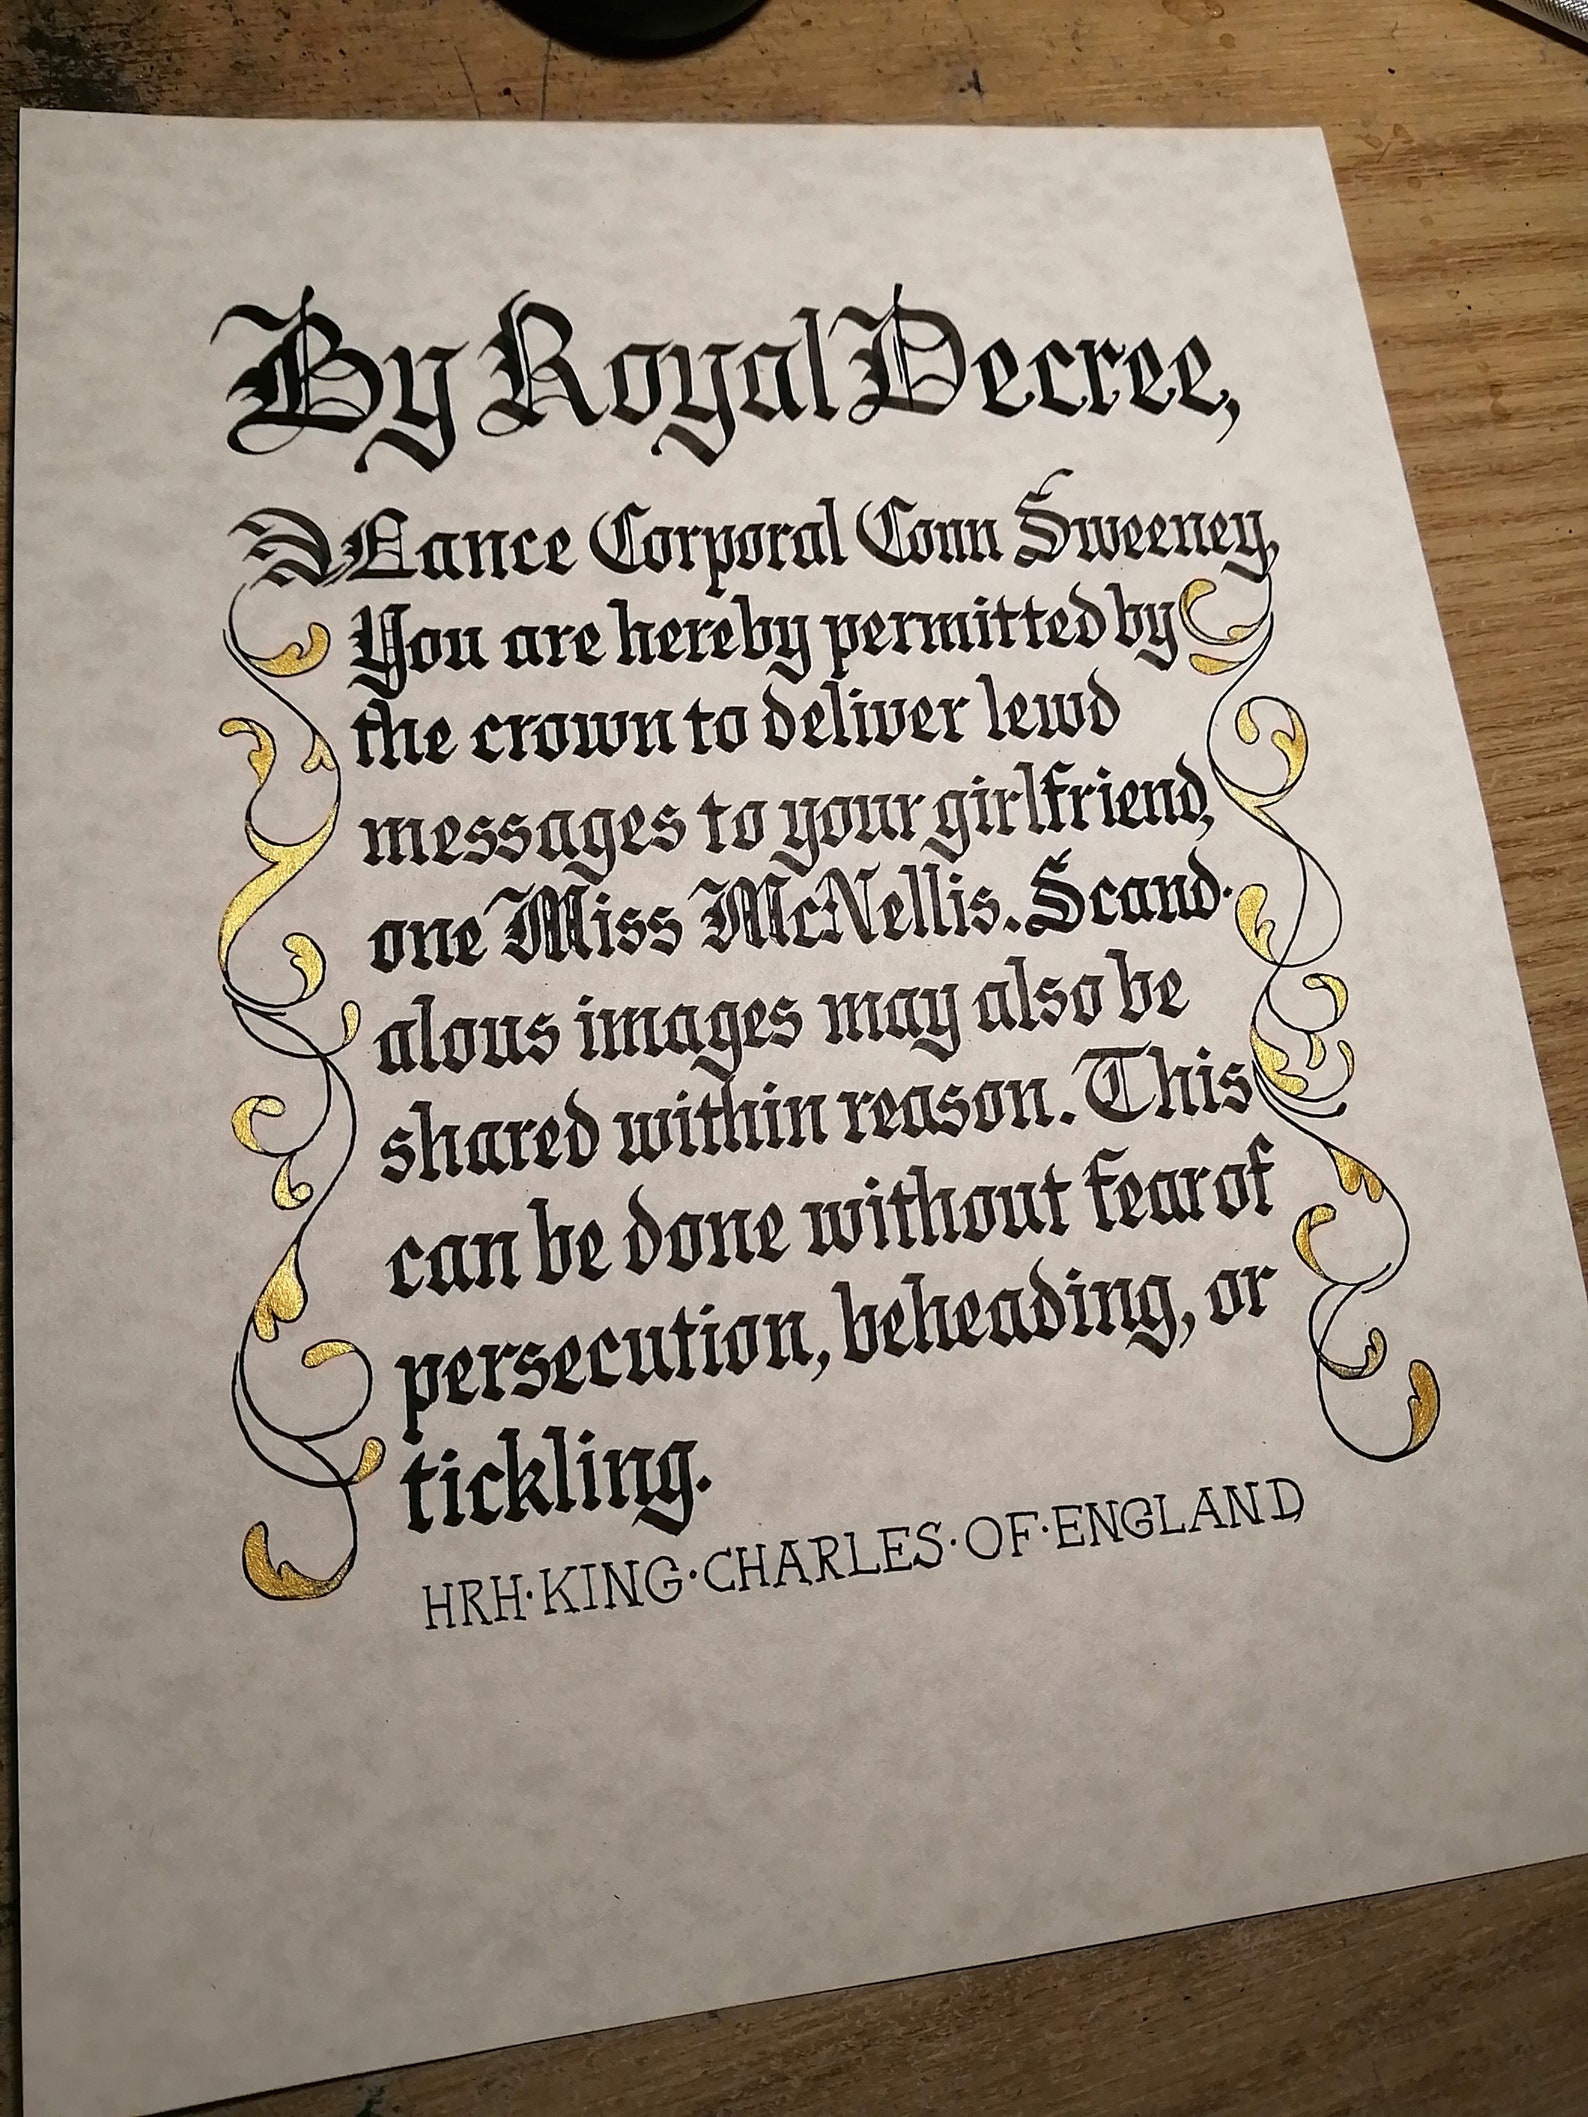 By Royal Decree,
Lance Corporal Conn Sweeney,
You are hereby permitted by
the crown to deliver lewd
messages to your girlfriend,
one Miss McNellis. Scand-
alous images may also be
shared within reason. This
can be done without fear of
persecution, beheading, or
tickling.
HRH·KING·CHARLES·OF·ENGLAND